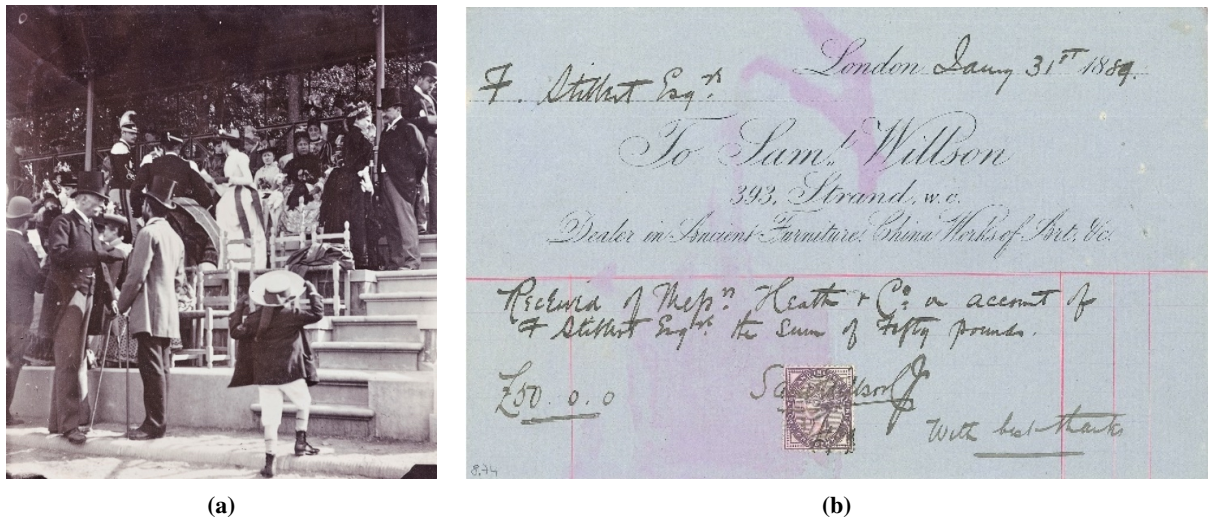 London Jany 31ST 1889.
F. Stibbert Esqre
To Saml. Willson
393, Strand, w.c.
Dealer in Ancient Furniture, China Works of Art, &c.
Received of Messrs Heath & Co. on account of
F Stibbert Esqre the Sum of Fifty pounds.
£50.0.0
Saml Willson
With best thanks
8,74
(a)
(b)